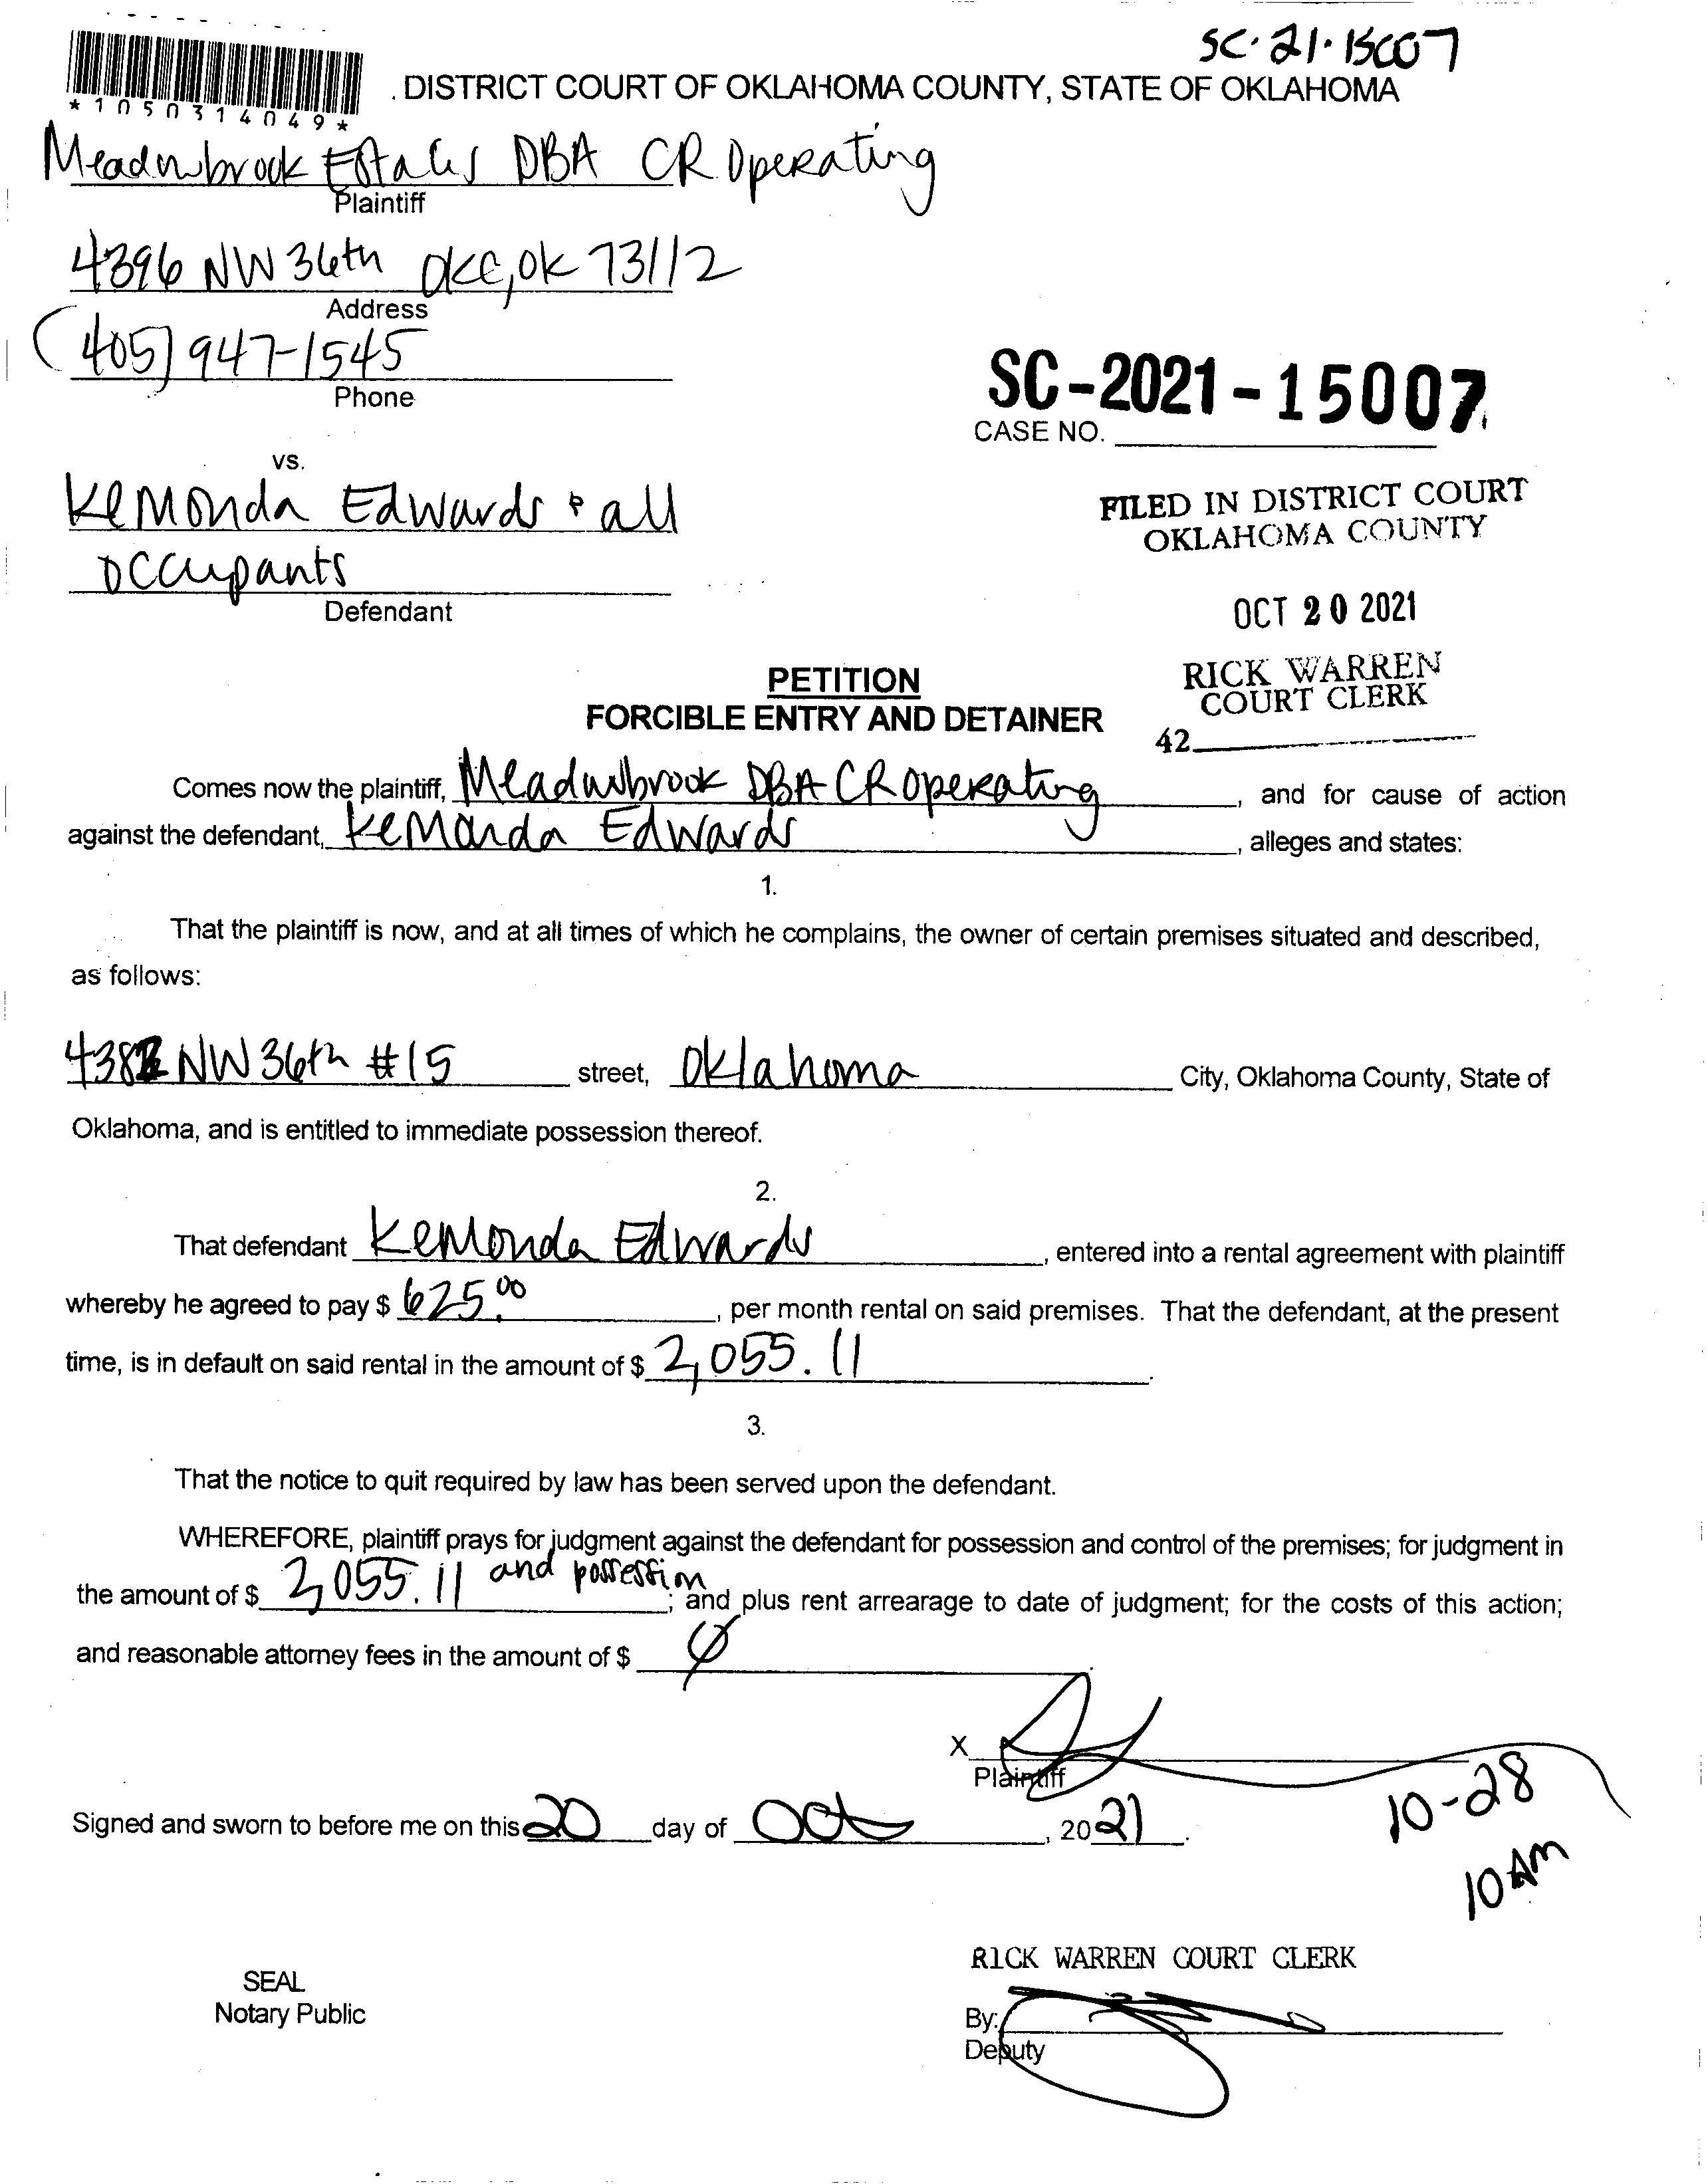 SC-21-15007
*1050314049*
. DISTRICT COURT OF OKLAHOMA COUNTY, STATE OF OKLAHOMA
Meadowbrook Estates DBA CR Operating
Plaintiff
4396 NW 36th OKC, OK 73112
Address
(405) 947-1545
Phone
SC-2021-15007
CASE NO.
vs.
KeMonda Edwards & all
occupants
Defendant
FILED IN DISTRICT COURT
OKLAHOMA COUNTY
OCT 20 2021
RICK WARREN
COURT CLERK
42
PETITION
FORCIBLE ENTRY AND DETAINER
Comes now the plaintiff, Meadowbrook DBA CR Operating, and for cause of action
against the defendant, KeMonda Edwards, alleges and states:
1.
That the plaintiff is now, and at all times of which he complains, the owner of certain premises situated and described,
as follows:
NW 36th #15 street, Oklahoma City, Oklahoma County, State of
Oklahoma, and is entitled to immediate possession thereof.
2.
That defendant KeMonda Edwards, entered into a rental agreement with plaintiff
whereby he agreed to pay $ 625.00, per month rental on said premises. That the defendant, at the present
time, is in default on said rental in the amount of $ 2,055.11.
3.
That the notice to quit required by law has been served upon the defendant.
WHEREFORE, plaintiff prays for judgment against the defendant for possession and control of the premises; for judgment in
the amount of $ 2,055.11 and possession; and plus rent arrearage to date of judgment; for the costs of this action;
and reasonable attorney fees in the amount of $ 0
X
Plaintiff
Signed and sworn to before me on this 20 day of Oct, 2021.
10-28
10 AM
SEAL
Notary Public
RICK WARREN COURT CLERK
By:
Deputy